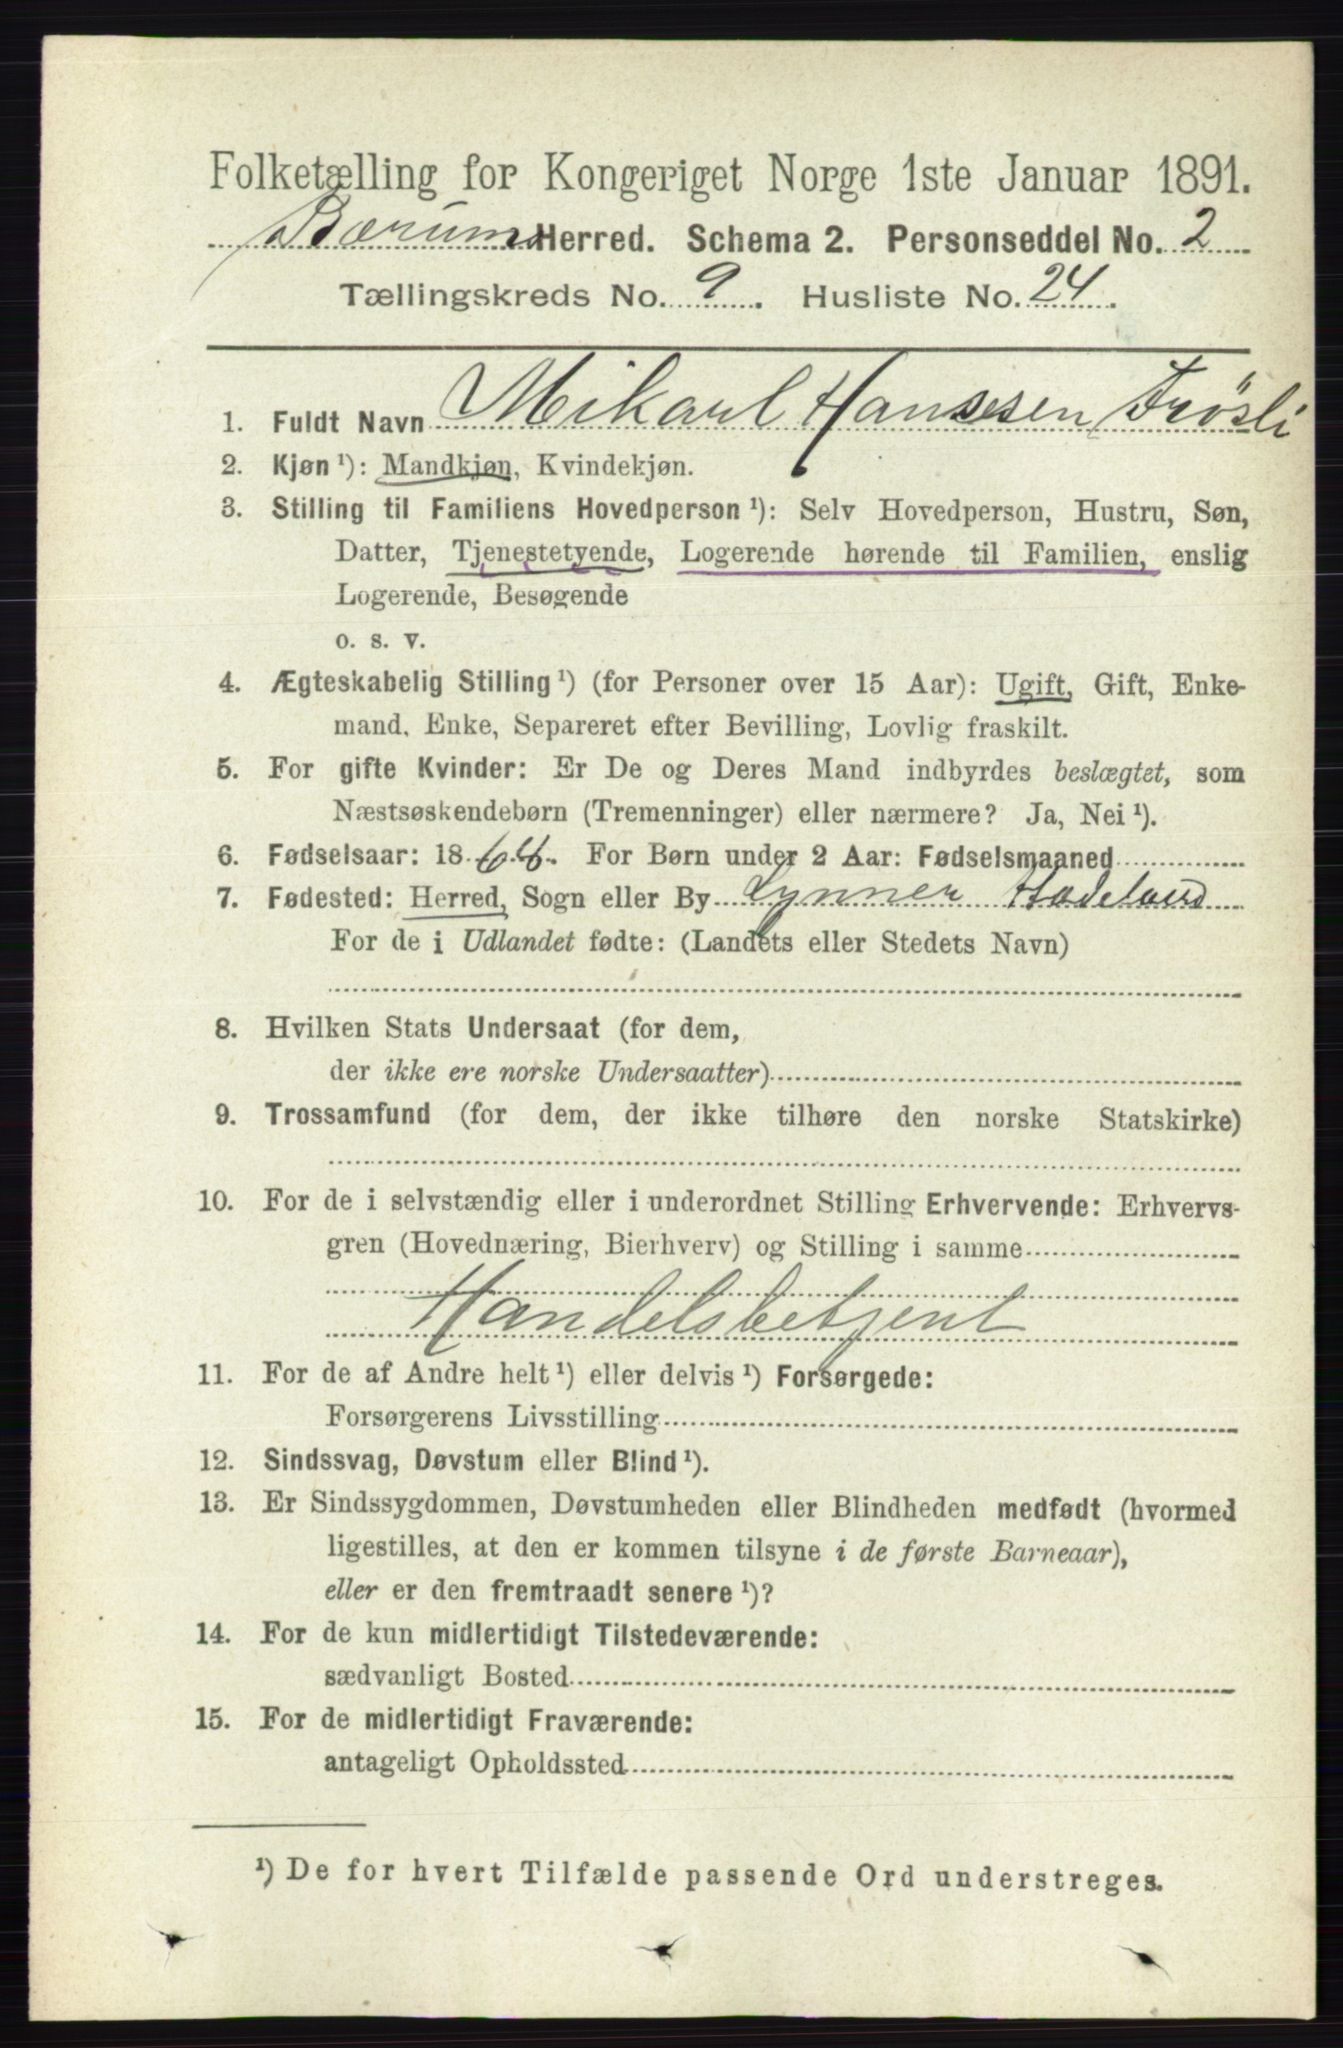 Folketælling for Kongeriget Norge 1ste Januar 1891.
Bærums Herred. Schema 2. Personseddel No. 2
Tællingskreds No. 9. Husliste No. 24.
1. Fuldt Navn Mikarl Hanssen Frösli
2. Kjøn ¹): Mandkjøn, Kvindekjøn.
3. Stilling til Familiens Hovedperson ¹): Selv Hovedperson, Hustru, Søn,
Datter, Tjenestetyende, Logerende hørende til Familien, enslig
Logerende, Besøgende
o. s. v.
4. Ægteskabelig Stilling ¹) (for Personer over 15 Aar): Ugift, Gift, Enke-
mand, Enke, Separeret efter Bevilling, Lovlig fraskilt.
5. For gifte Kvinder: Er De og Deres Mand indbyrdes beslægtet, som
Næstsøskendebørn (Tremenninger) eller nærmere? Ja, Nei ¹).
6. Fødselsaar: 18 For Børn under 2 Aar: Fødselsmaaned
7. Fødested: Herred, Sogn eller By Lynner Hadeland
For de i Udlandet fødte: (Landets eller Stedets Navn)
8. Hvilken Stats Undersaat (for dem,
der ikke ere norske Undersaatter)
9. Trossamfund (for dem, der ikke tilhøre den norske Statskirke)
10. For de i selvstændig eller i underordnet Stilling Erhvervende: Erhvervs-
gren (Hovednæring, Bierhverv) og Stilling i samme
Handelsbetjent
11. For de af Andre helt ¹) eller delvis ¹) Forsørgede:
Forsørgerens Livsstilling
12. Sindssvag, Døvstum eller Blind ¹).
13. Er Sindssygdommen, Døvstumheden eller Blindheden medfødt (hvormed
ligestilles, at den er kommen tilsyne i de første Barneaar),
eller er den fremtraadt senere ¹)?
14. For de kun midlertidigt Tilstedeværende:
sædvanligt Bosted
15. For de midlertidigt Fraværende:
antageligt Opholdssted
¹) De for hvert Tilfælde passende Ord understreges.